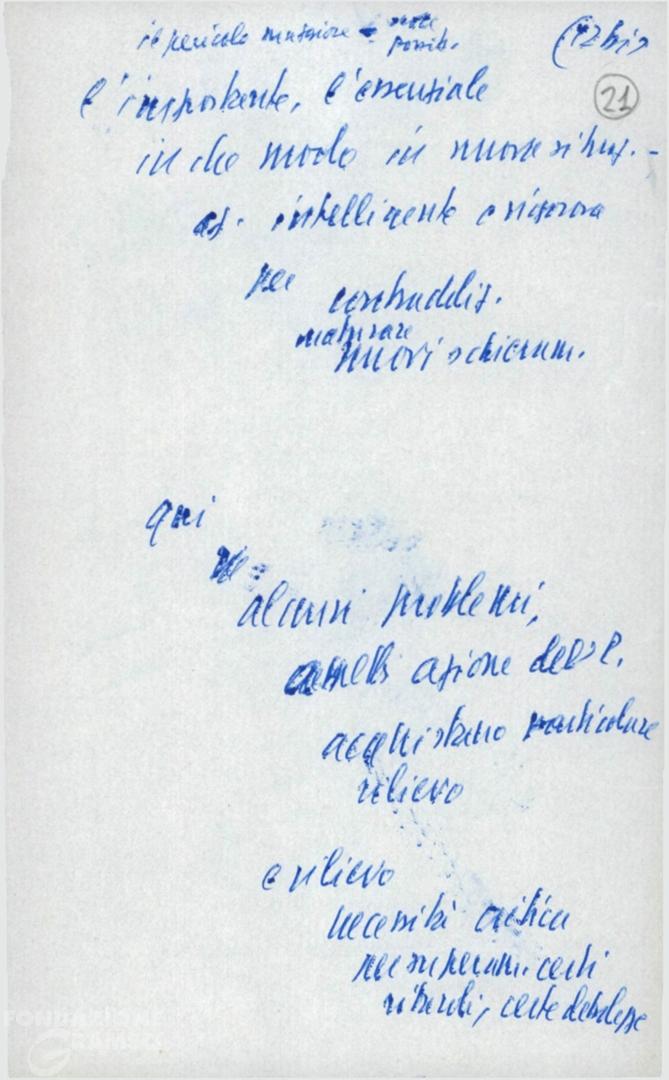 il pericolo maggiore =
possib.
(12 bis
21
l'importante, l'essenziale
in che modo in nuova situaz. -
az. intelligente e rigorosa
per contraddiz.
maturare
nuovi schieram.
qui
alcuni problemi,
azione del P.
acquistano particolare
rilievo
e rilievo
necessità critica
per superam. certi
ritardi, certe debolezze
FONDAZIONE
GRAMSCI